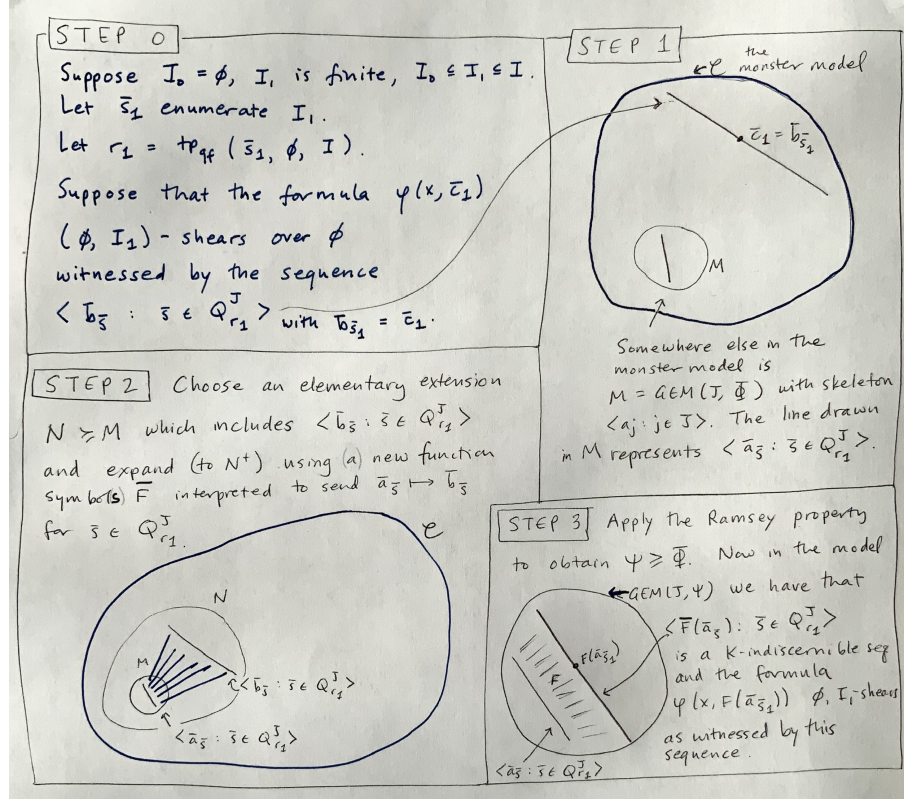 STEP 0
Suppose I₀ = ϕ, I₁ is finite, I₀ ⊆ I₁ ⊆ I.
Let s̄₁ enumerate I₁.
Let r₁ = tp_qf (s̄₁, ϕ, I).
Suppose that the formula φ(x, c̄₁)
(ϕ, I₁) - shears over ϕ
witnessed by the sequence
< b̄_s̄ : s̄ ∈ Q^J_r₁ > with b̄_s̄₁ = c̄₁.
STEP 1
𝒞 the
monster model
c̄₁ = b̄_s̄₁
M
Somewhere else in the
monster model is
M = GEM(J, Φ) with skeleton
<aj : j ∈ J>. The line drawn
in M represents < ā_s̄ : s̄ ∈ Q^J_r₁ >.
STEP 2 Choose an elementary extension
N ≽ M which includes < b̄_s̄ : s̄ ∈ Q^J_r₁ >
and expand (to N⁺) using (a) new function
symbol(s) F̄ interpreted to send ā_s̄ ↦ b̄_s̄
for s̄ ∈ Q^J_r₁.
𝒞
N
M
< b̄_s̄ : s̄ ∈ Q^J_r₁ >
< ā_s̄ : s̄ ∈ Q^J_r₁ >
STEP 3 Apply the Ramsey property
to obtain Ψ ≥ Φ. Now in the model
GEM(J, Ψ) we have that
< F̄(ā_s̄) : s̄ ∈ Q^J_r₁ >
is a K-indiscernible seq
and the formula
φ(x, F(ā_s̄₁)) ϕ, I₁-shears
as witnessed by this
sequence.
F(ā_s̄₁)
F
< ā_s̄ : s̄ ∈ Q^J_r₁ >